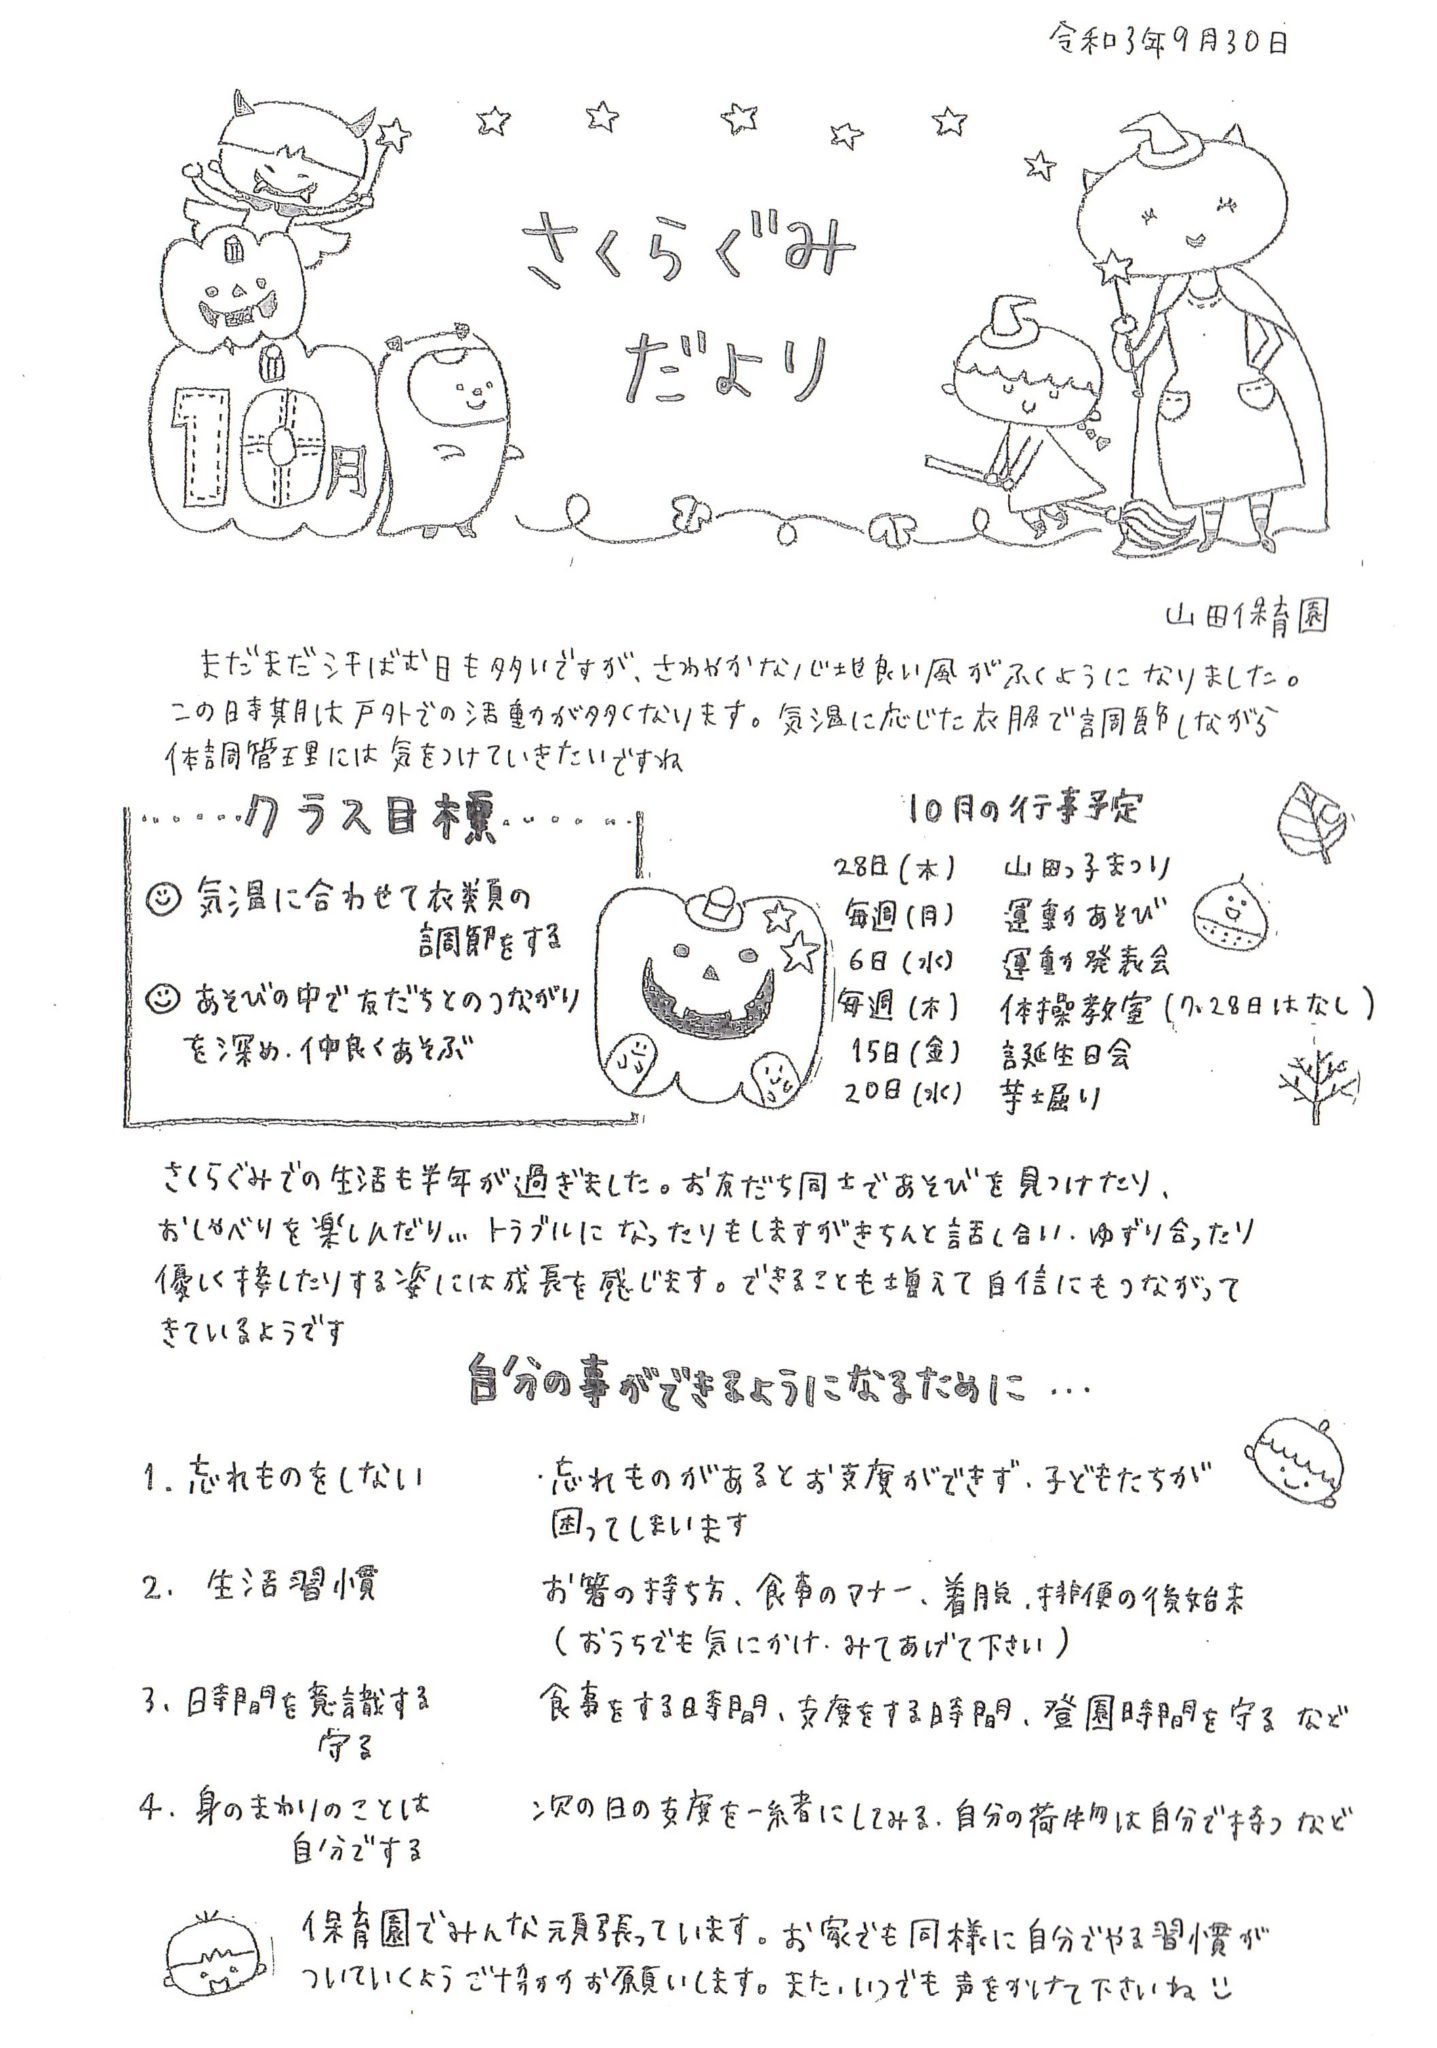 令和3年9月30日
さくらぐみ
だより
10月
山田保育園
まだまだ汗ばむ日も多いですが、さわやかな心地良い風がふくようになりました。
この時期は戸外での活動が多くなります。気温に応じた衣服で調節しながら
体調管理には気をつけていきたいですね
クラス目標
気温に合わせて衣類の
調節をする
あそびの中で友だちとのつながり
を深め、仲良くあそぶ
10月の行事予定
28日(木) 山田っ子まつり
毎週(月) 運動あそび
6日(水) 運動発表会
毎週(木) 体操教室(7、28日はなし)
15日(金) 誕生日会
20日(水) 芋堀り
さくらぐみでの生活も半年が過ぎました。お友だち同士であそびを見つけたり、
おしゃべりを楽しんだり… トラブルになったりもしますがきちんと話し合い、ゆずり合ったり
優しく接したりする姿には成長を感じます。できることも増えて自信にもつながって
きているようです
自分の事ができるようになるために…
1. 忘れものをしない ・忘れものがあるとお支度ができず、子どもたちが
困ってしまいます
2. 生活習慣 お箸の持ち方、食事のマナー、着脱、排便の後始末
(おうちでも気にかけ、みてあげて下さい)
3. 時間を意識する 食事をする時間、支度をする時間、登園時間を守る など
守る
4. 身のまわりのことは 次の日の支度を一緒にしてみる、自分の荷物は自分で持つ など
自分でする
保育園でみんな頑張っています。お家でも同様に自分でやる習慣が
ついていくようご協力お願いします。また、いつでも声をかけて下さいね